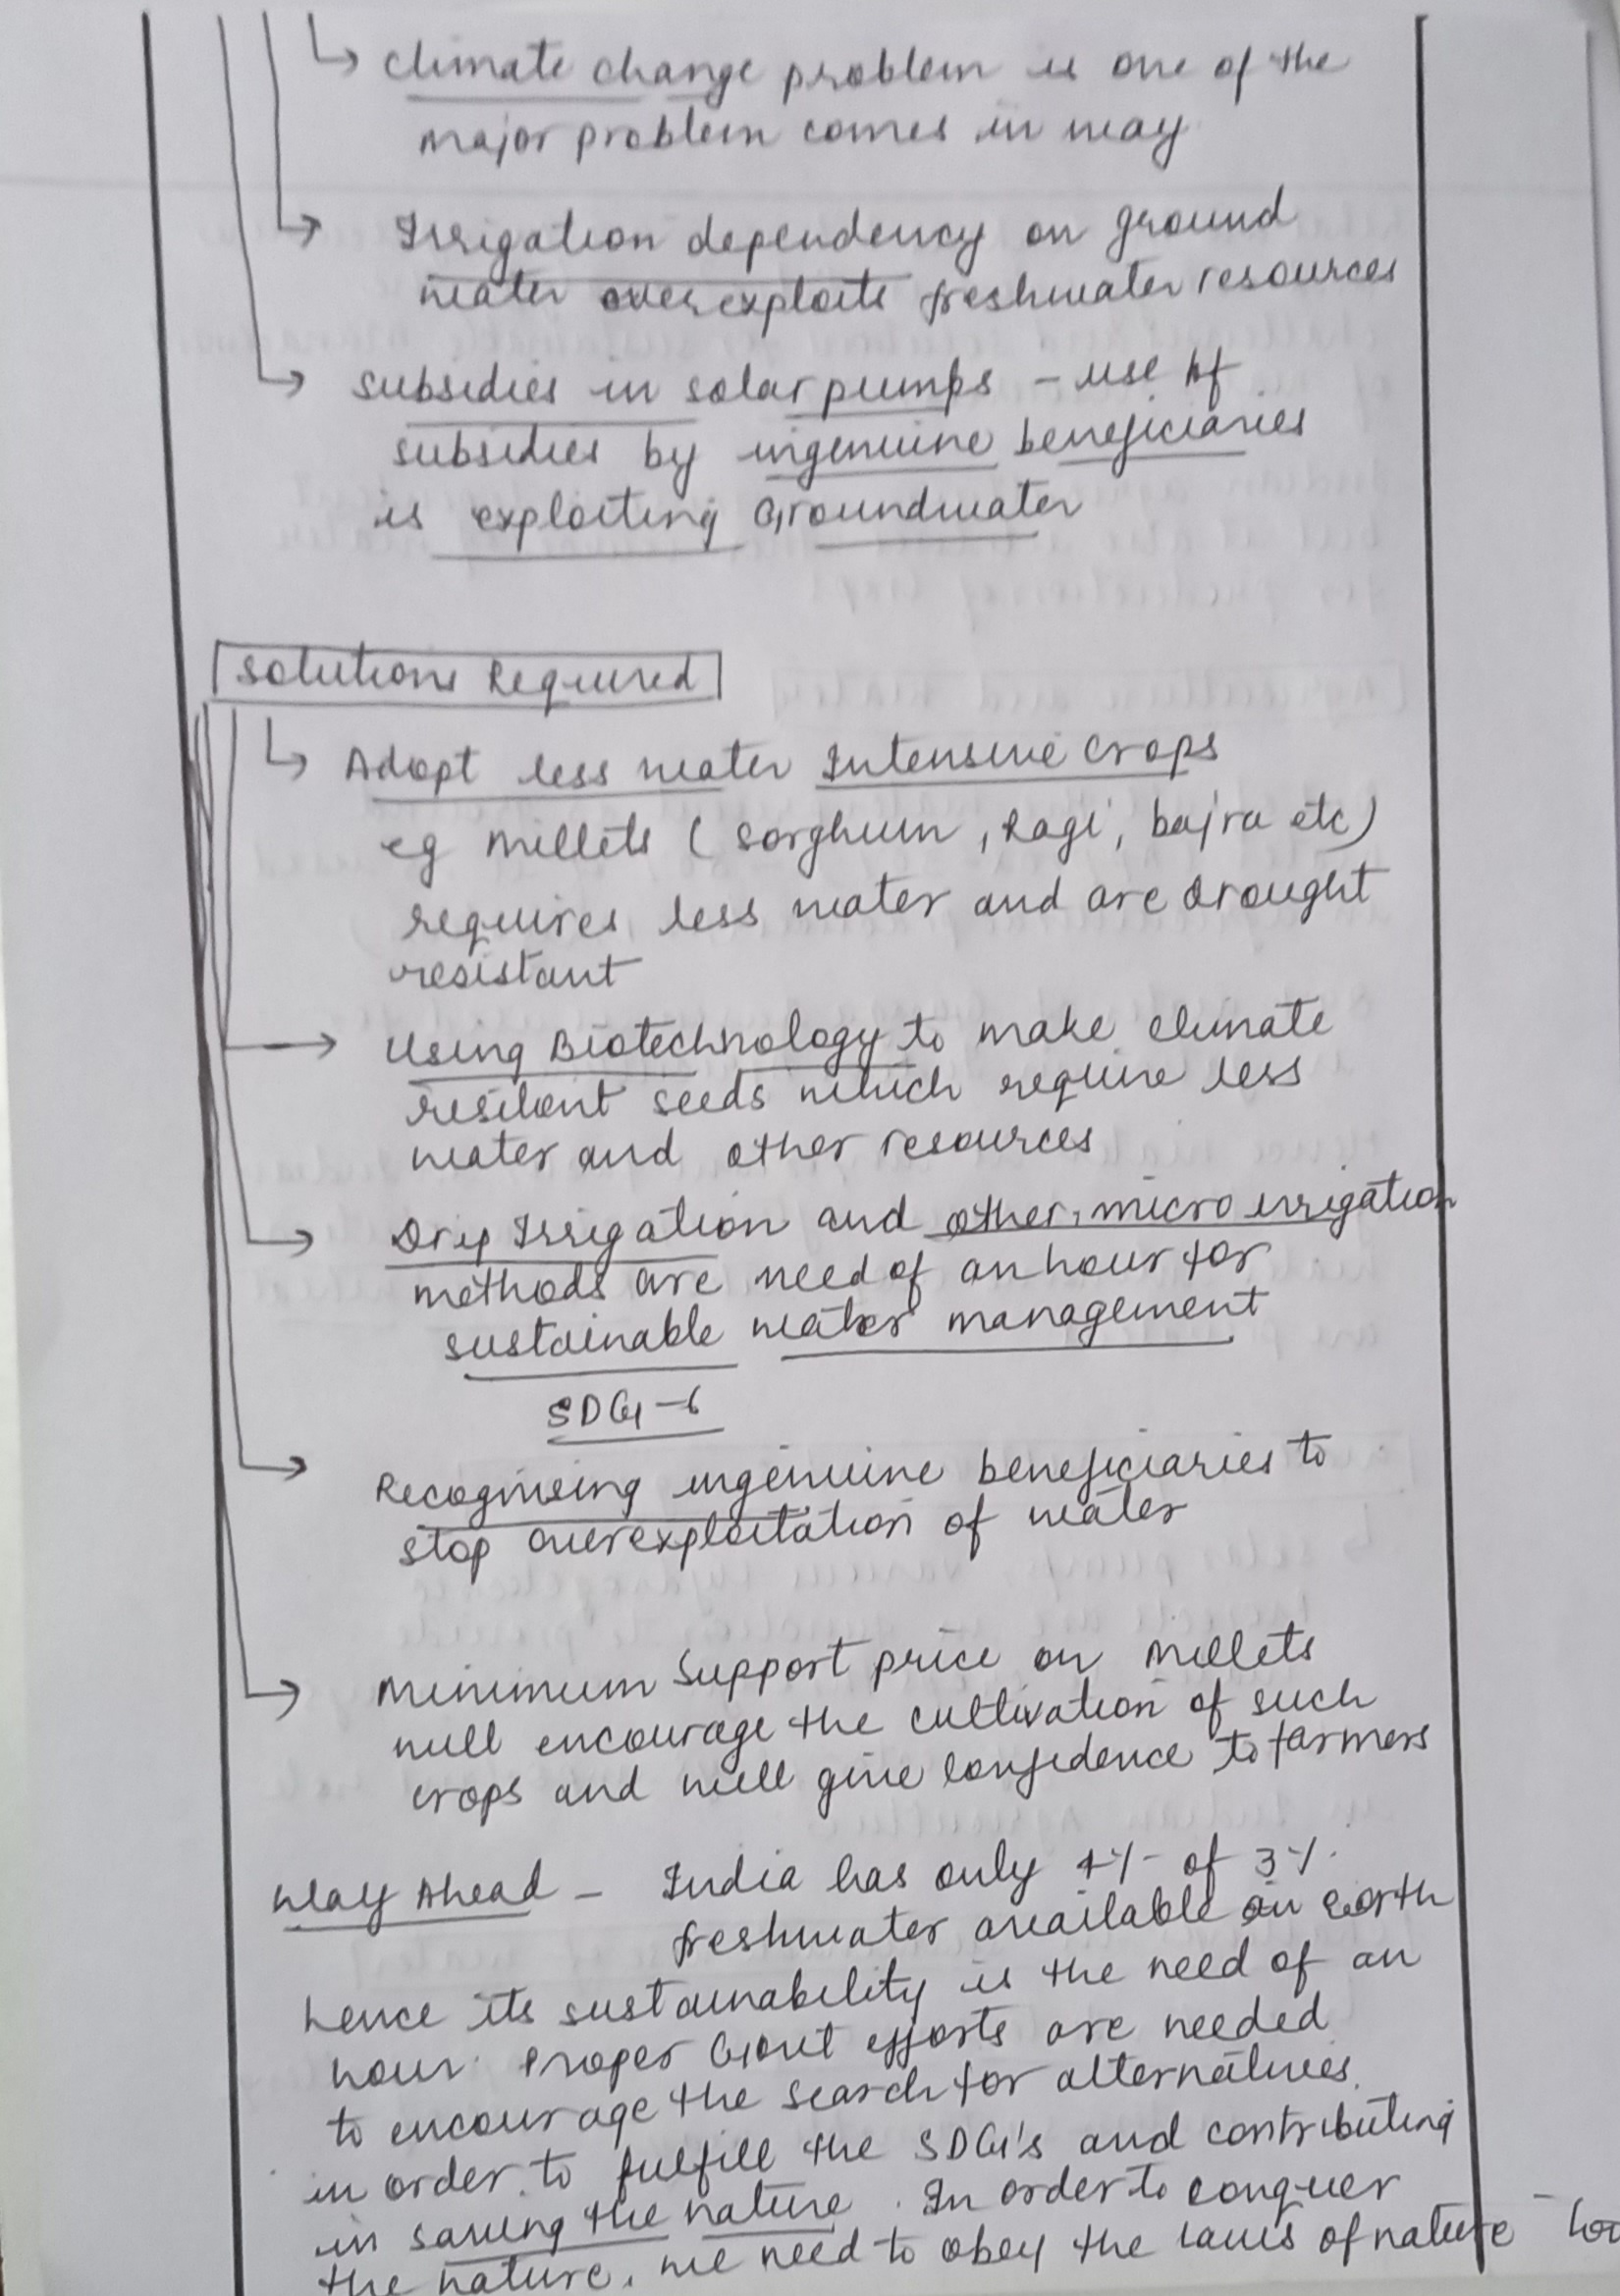 climate change problem is one of the
major problem comes in way
Irrigation dependency on ground
water over exploits freshwater resources
subsidies in solar pumps - use of
subsidies by ingenuine beneficiaries
is exploiting Groundwater
Solutions Required
Adopt less water Intensive crops
eg Millets ( Sorghum , Ragi , bajra etc)
requires less water and are drought
resistant
Using Biotechnology to make climate
resilent seeds which require less
water and other resources
Drip Irrigation and other micro irrigation
methods are need of an hour for
sustainable water management
SDG-6
Recognising ingenuine beneficiaries to
stop overexploitation of water
Minimum Support price on Millets
will encourage the cultivation of such
crops and will give confidence to farmers
Way Ahead - India has only 4% of 3%
freshwater available on earth
hence its sustainability is the need of an
hour. Proper Govt efforts are needed
to encourage the search for alternatives
in order to fulfill the SDG's and contributing
in saving the nature. In order to conquer
the nature, we need to obey the laws of nature -